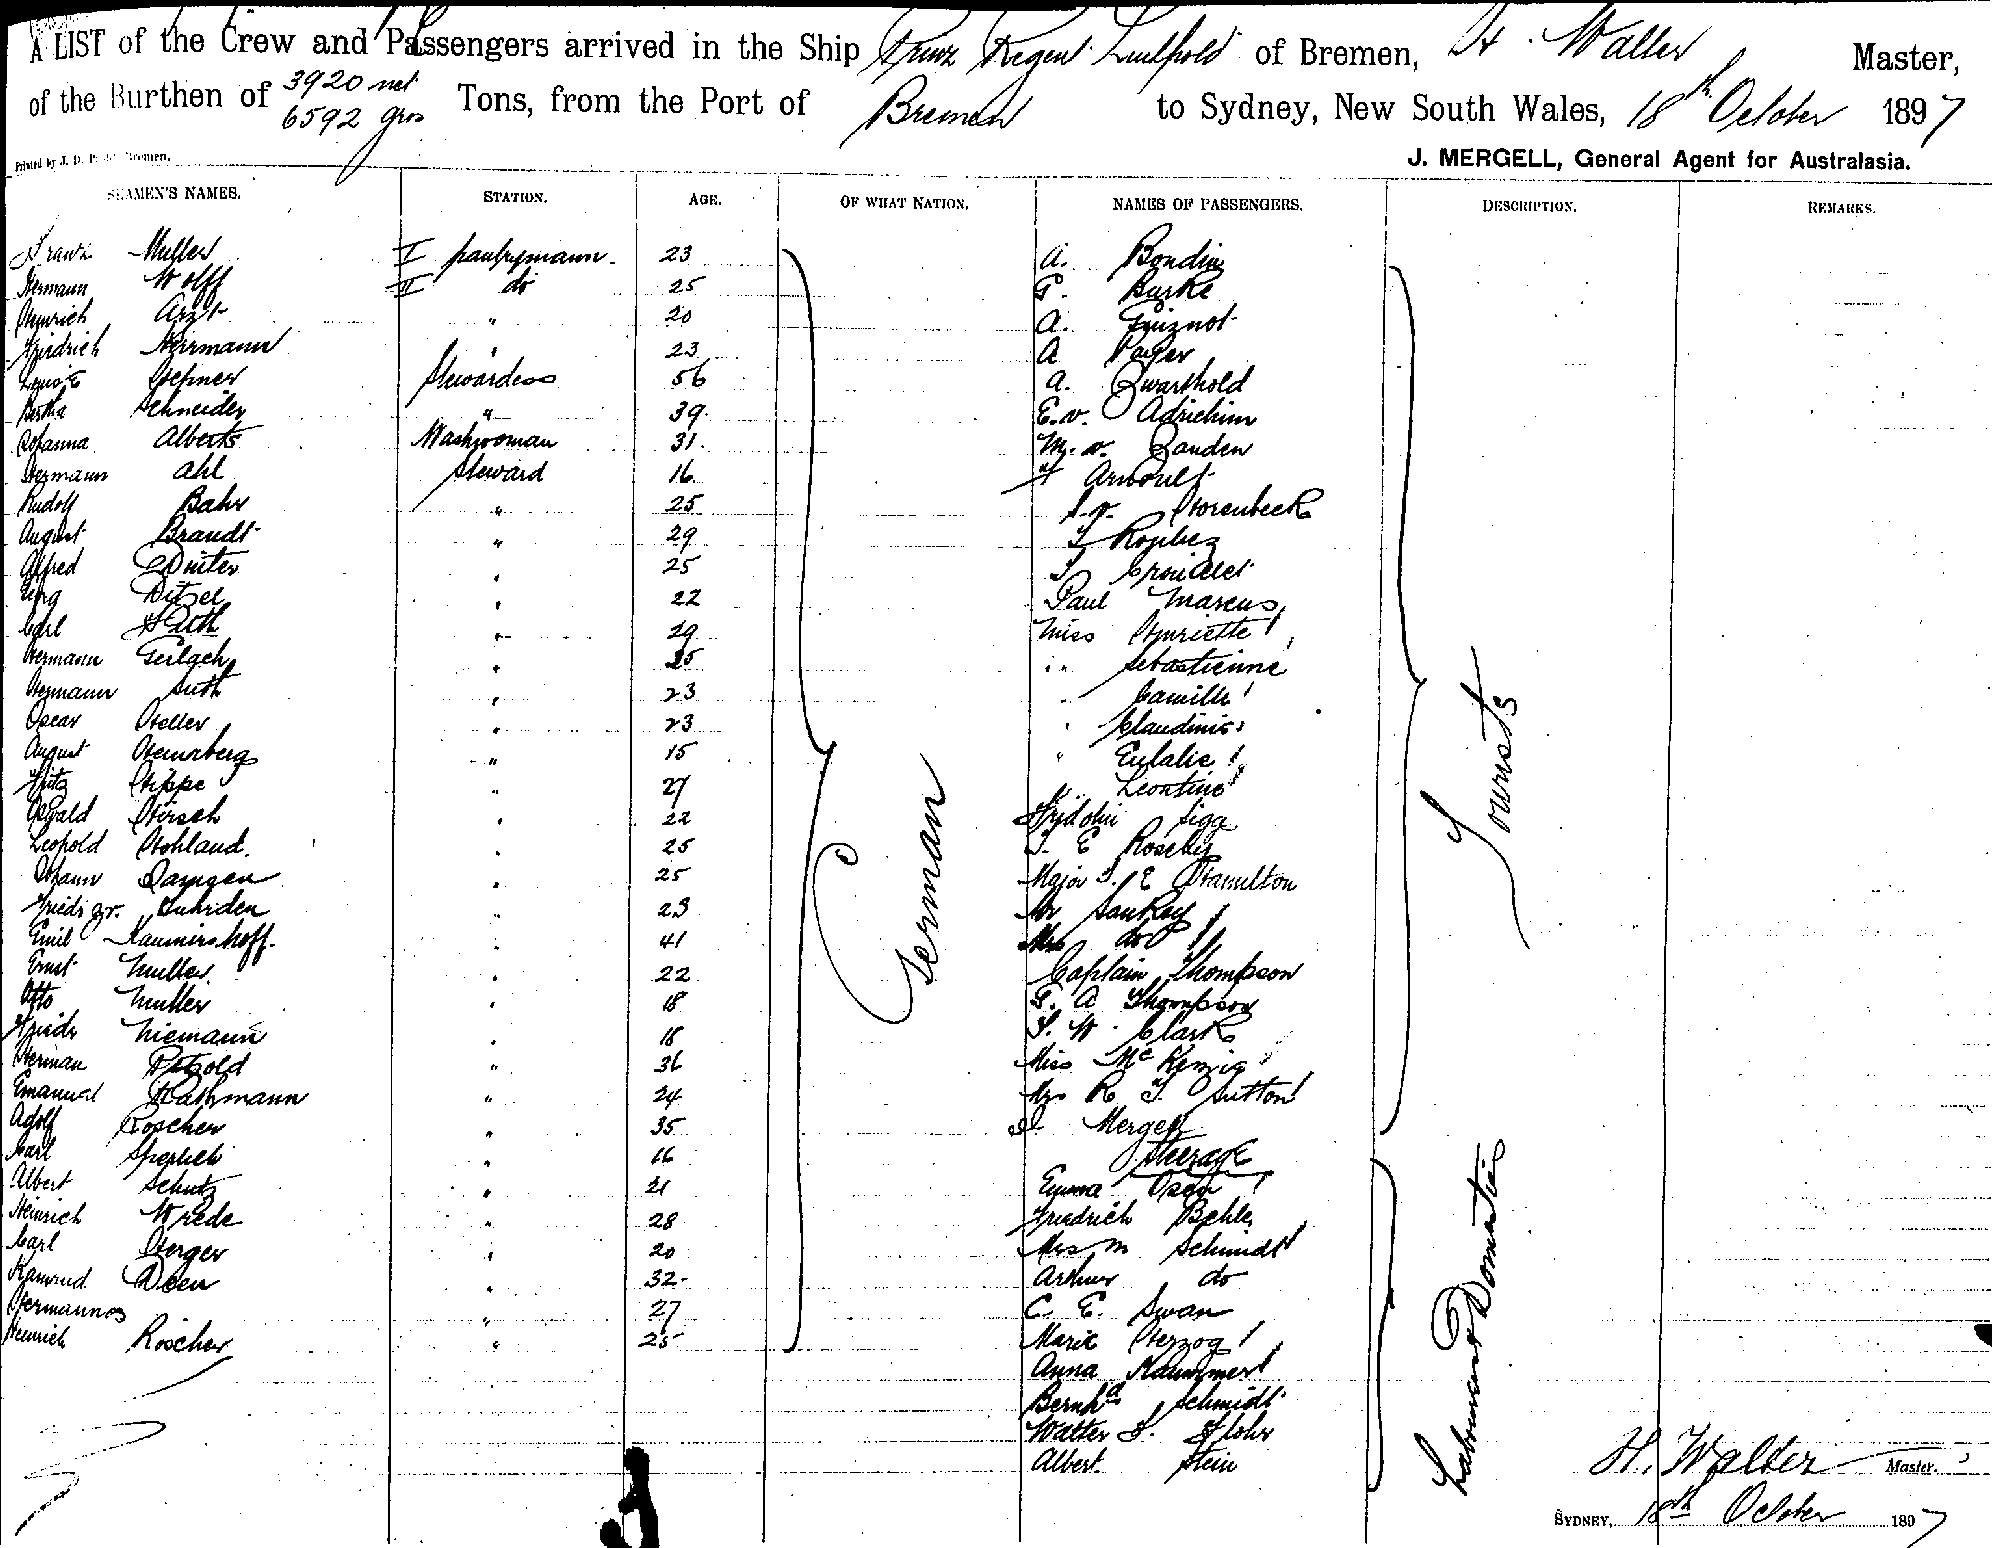 A LIST of the Crew and Passengers arrived in the Ship Prinz Regent Luitpold of Bremen, H. Walter Master,
of the Burthen of 3920 net 6592 gros Tons, from the Port of Bremen to Sydney, New South Wales, 18th October 1897
Printed by J. D. Bremen.
J. MERGELL, General Agent for Australasia.
SEAMEN'S NAMES. STATION. AGE. OF WHAT NATION. NAMES OF PASSENGERS. DESCRIPTION. REMARKS.
Franz Muller I pantrymann 23 A. Bondin
Hermann Wolff II do 25 G. Burke
Heinrich Arzt " 20 A.
Friedrich Herrmann " 23 A
Stewardess 56 A.
Bertha Schneider " 39 E. v. Adrichim
Johanna Alberts Washwoman 31 M. v. Zanden
Hermann Ahl Steward 16 Arnoult
Rudolf Bahr " 25 v.
August Brandt " 29
Alfred " 25
Georg Ditzel " 22 Paul Marcus
Carl " 29 Miss Henriette
Hermann Gerlach " 25 " Sebastienne
Hermann " 23 " Camille
Oscar Heller " 23 " Claudinis
August " 15 " Eulalie
Fritz Hippe " 27 " Leontine
Oswald Hirsch " 22 Fridolin
Leopold Hohland. " 25 E Roseby
Johann " 25 Major J. E Hamilton
Friedr " 23 Mr Sankey
Emil " 41 Mrs do
Ernst Muller " 22 Captain Thompson
Otto Muller " 18 G. A Thompson
Friedr Niemann " 18 W. Clark
Herman Petzold " 36 Miss McKenzie
Emanuel Rathmann " 24 Mrs R Sutton
Adolf Roscher " 35 Mergell
Carl Sperlich " 16 Steerage
Albert Schutz " 21 Emma
Heinrich Wrede " 28 Friedrich Behle
Carl Herger " 20 Mrs M Schmidt
Deen " 32 Arthur do
Hermannos " 27 C. E. Swan
Heinrich Röscher " 25 Marie Herzog
Anna
Bernhd Schmidt
Walter Flohr
Albert Stein
German
Tourists
Labourers & Domestics
H. Walter Master.
SYDNEY, 18th October 1897